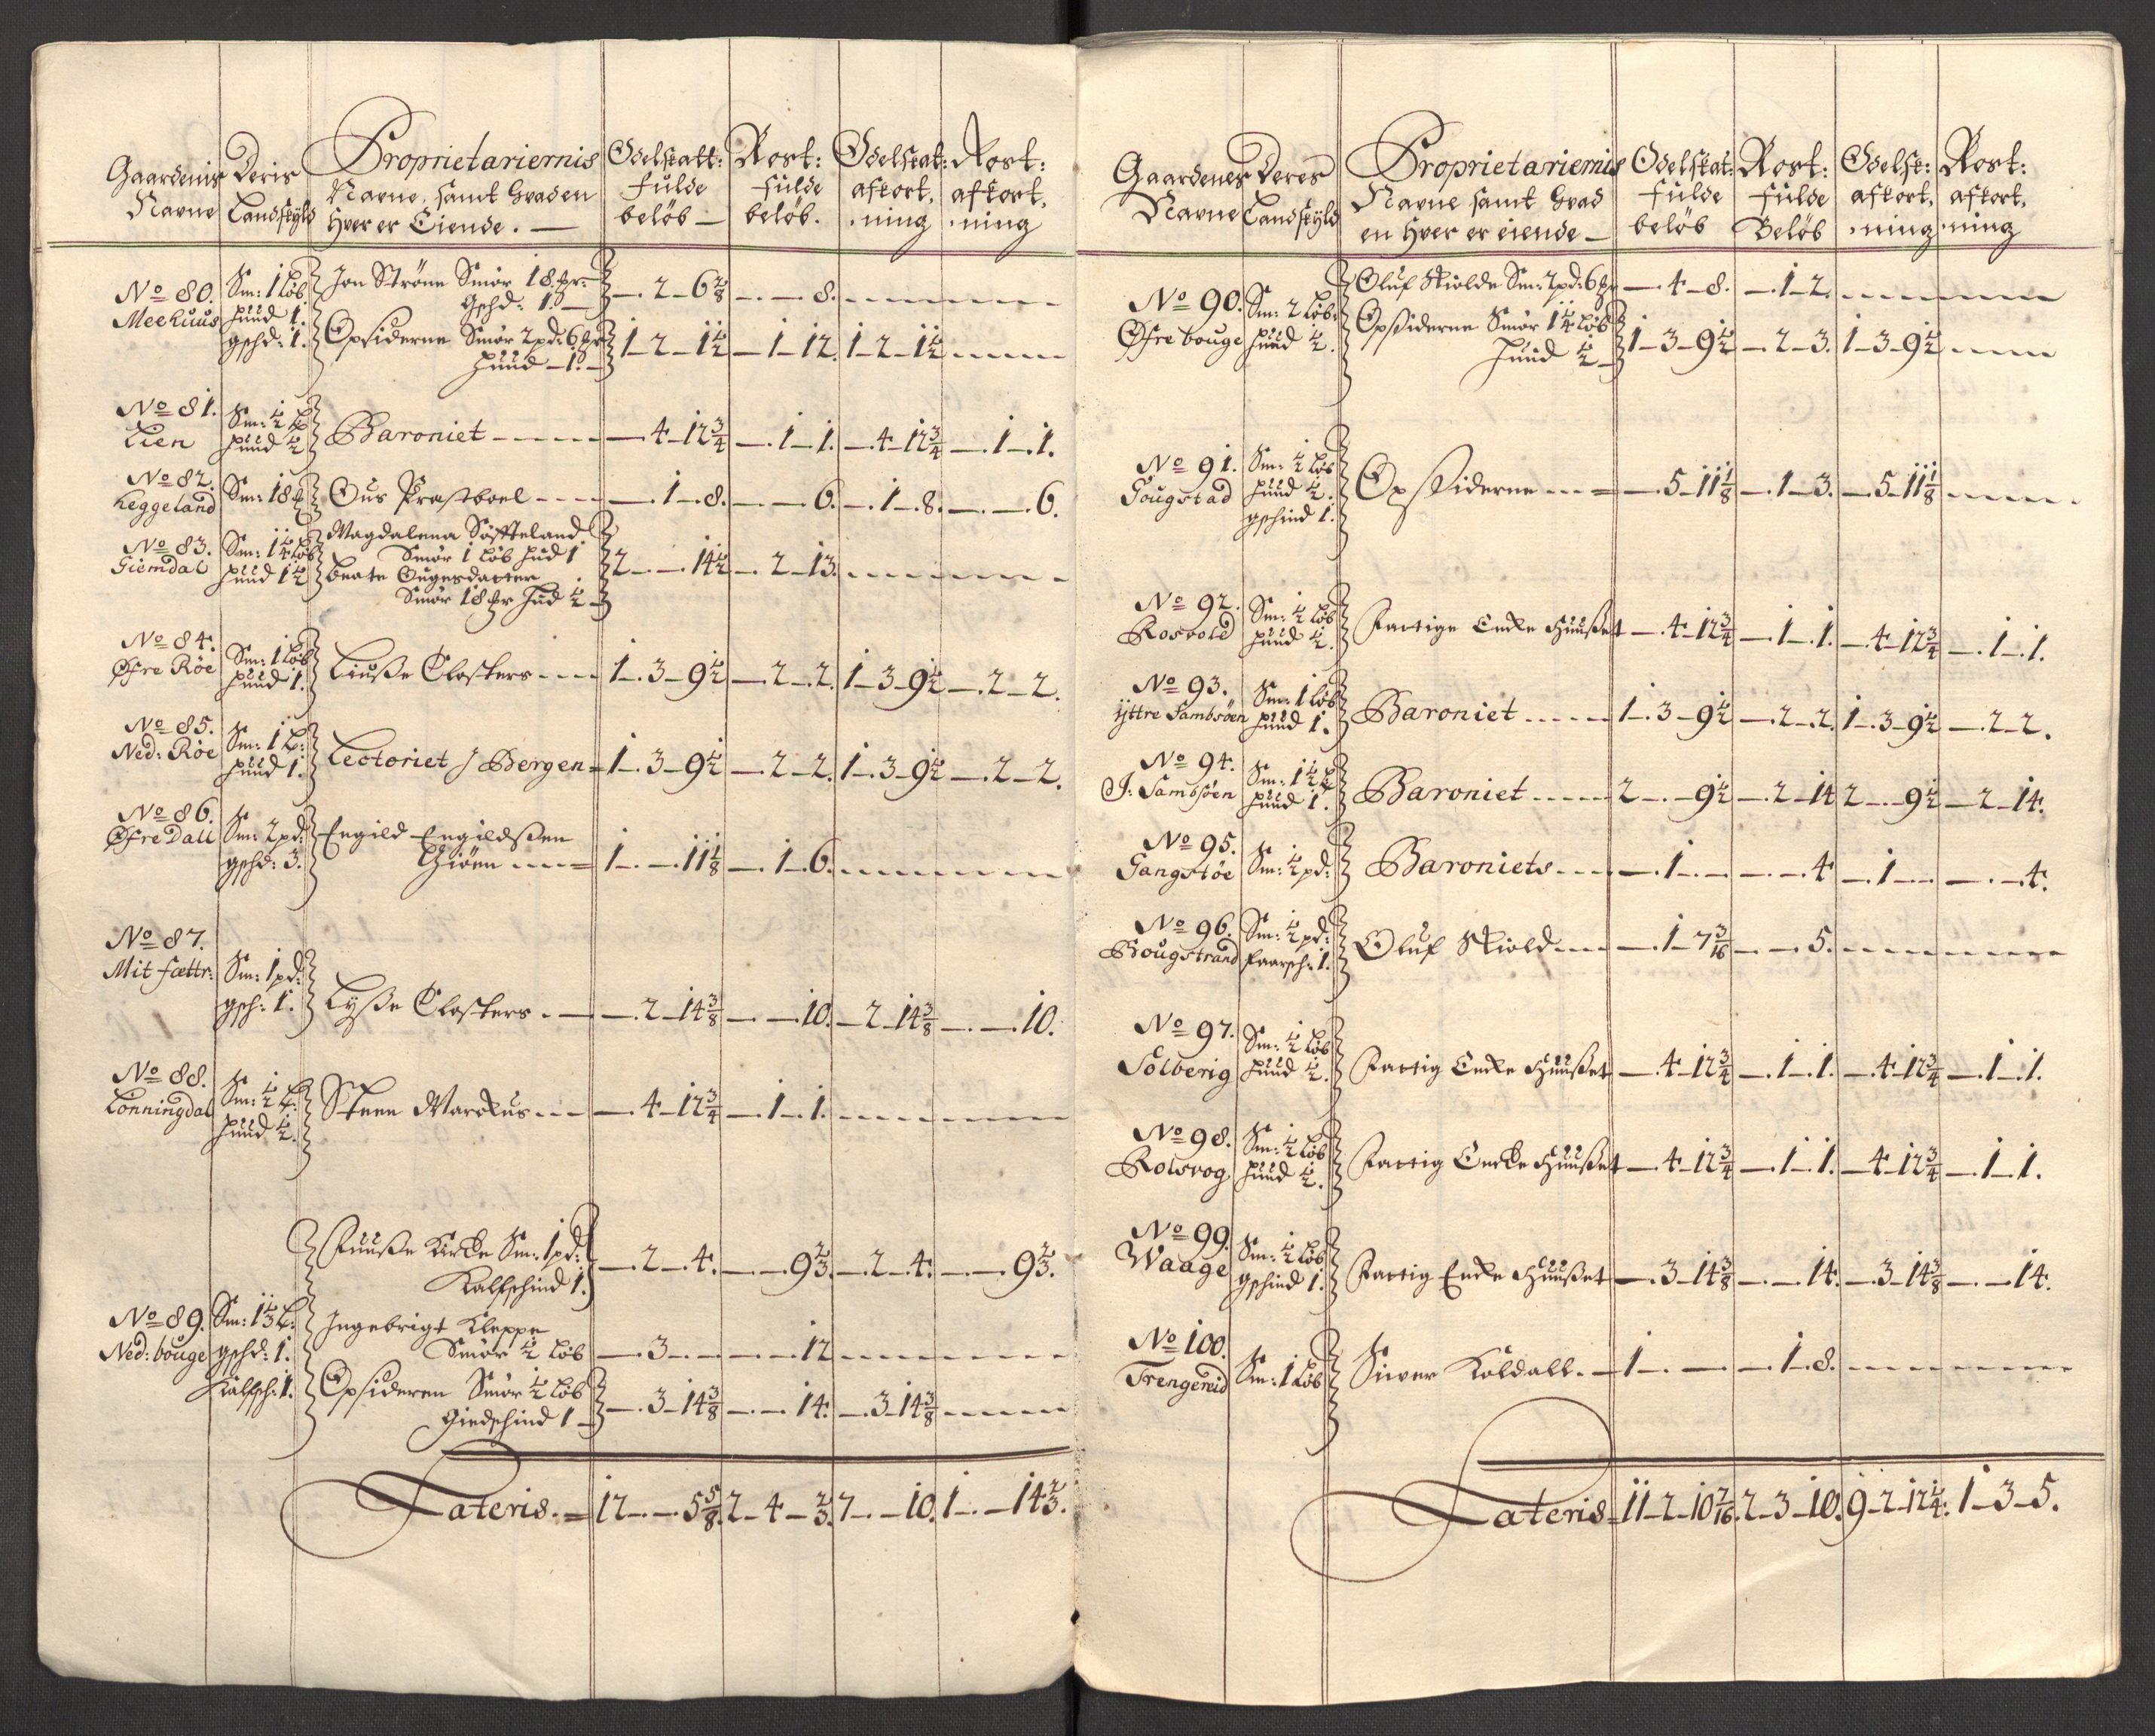 Gaardenis Navne | Deris Landskÿld | Proprietariernis Navne, samt hvad en hver er Eiende. | Odelskatt: fulde beløb | Rost: fulde beløb. | Odelskat: afkort, ning | Rost: afkort, ning
No 80. Meehuus | Sm: 1 Løb. huud 1. gschd: 1. | Jon Ströne Smör 18 mr. gschd: 1. | — 2 — 6 2/8 | — — 8.
Opsiderne Smör 2 pd: 6 mr huud — 1. | 1 — 2 — 1 1/2 | — 1 — 12. | 1 — 2 — 1 1/2
No 81. Lien | Sm: 1/2 L huud 1/2 | Baroniet | — 4 — 12 3/4 | — 1 — 1. | — 4 — 12 3/4 | — 1 — 1.
No 82. Heggeland | Sm: 18 mr | Ous Præstboel | — 1 — 8. | — — 6. | — 1 — 8. | — — 6.
No 83. Giemdal | Sm: 1 1/4 Løb huud 1 1/2 | Magdalena Söffteland
Smör 1 Løb hud 1 | 2 — — 14 1/2 | — 2 — 13.
beate Ougesdatter
Smör 18 mr hud 1/2
No 84. Øfre Röe | Sm: 1 Løb huud 1. | Liusse Closters | 1 — 3 — 9 1/2 | — 2 — 2. | 1 — 3 — 9 1/2 | — 2 — 2.
No 85. Ned: Röe | Sm: 1 L: huud 1. | Lectoriet J Bergen | 1 — 3 — 9 1/2 | — 2 — 2. | 1 — 3 — 9 1/2 | — 2 — 2.
No 86. Øfre Dall | Sm: 2 pd: gschd: 3. | Engild Engildssen Giöen | 1 — — 11 1/8 | — 1 — 6.
No 87. Mit fættr: | Sm: 1 pd: gsch: 1. | Lysse Closters | — 2 — 14 3/8 | — — 10. | — 2 — 14 3/8 | — — 10.
No 88. Lonningdal | Sm: 1/2 L: huud 1/2. | Steen Marckus | — 4 — 12 3/4 | — 1 — 1.
Fuusse Kircke Sm: 1 pd: Kalfschind 1. | — 2 — 4. | — — 9 2/3. | — 2 — 4. | — — 9 2/3.
No 89. Ned: bouge | Sm: 1 1/3 L: gschd: 1. Kalfsch: 1. | Ingebrigt Kleppe
Smör 1/2 Løb | — 3 — — | — — 12
Opsideren Smör 1/2 Løb Giedschind 1 | — 3 — 14 3/8 | — — 14. | — 3 — 14 3/8
Lateris. | 12 — — 5 5/8. | 2 — 4 — 2/3. | 7 — — 10. | 1 — — 14 2/3.
Gaardenes Navne | Deres Landskÿld | Proprietariernis Navne samt hvad en hver er eiende | Odelskat: fulde beløb | Rost: fulde Beløb | Odelsk: afkort, ning | Rost: afkort, ning
No 90. Øfre bouge | Sm: 2 Løb: huud 1/2. | Oluf Skiolde Sm: 2 pd: 6 mr | — 4 — 8. | — 1 — 2.
Opsiderne Smör 1 1/4 Løb huud 1/2 | 1 — 3 — 9 1/2 | — 2 — 3. | 1 — 3 — 9 1/2
No 91. Tougstad | Sm: 1/2 Løb huud 1/2. gschind 1. | Opssiderne | — 5 — 11 1/8 | — 1 — 3. | — 5 — 11 1/8
No 92. Rosvold | Sm: 1/2 Løb huud 1/2. | Fattige Encke Huusset | — 4 — 12 3/4 | — 1 — 1. | — 4 — 12 3/4 | — 1 — 1.
No 93. ÿttre Sambsöen | Sm: 1 Løb huud 1. | Baroniet | 1 — 3 — 9 1/2 | — 2 — 2. | 1 — 3 — 9 1/2 | — 2 — 2.
No 94. J: Sambsöen | Sm: 1 1/2 L huud 1. | Baroniet | 2 — — 9 1/2 | — 2 — 14 | 2 — — 9 1/2 | — 2 — 14.
No 95. Gangstöe | Sm: 1/2 pd: | Baroniets | — 1 — — | — — 4 | — 1 — — | — — 4.
No 96. Bougstrand | Sm: 1/2 pd: Faarsch: 1. | Oluf Skiold | — 1 — 7 3/16 | — — 5.
No 97. Solberig | Sm: 1/2 Løb huud 1/2. | Fattig Encke Huusset | — 4 — 12 3/4 | — 1 — 1. | — 4 — 12 3/4 | — 1 — 1.
No 98. Rolsvog | Sm: 1/2 Løb huud 1/2. | Fattig Encke Huusset | — 4 — 12 3/4 | — 1 — 1. | — 4 — 12 3/4 | — 1 — 1.
No 99. Waage | Sm: 1/2 Løb gschind 1. | Fattig Encke Huusset | — 3 — 14 3/8 | — — 14. | — 3 — 14 3/8 | — — 14.
No 100. Trengereid | Sm: 1 Løb | Siver Koldall | 1 — — | — 1 — 8.
Lateris | 11 — 2 — 10 7/16. | 2 — 3 — 10. | 9 — 2 — 12 1/4. | 1 — 3 — 5.